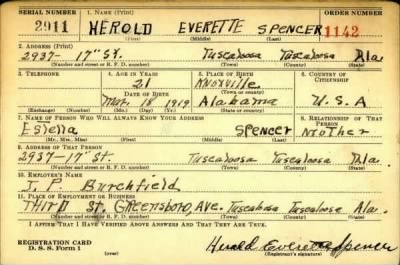 SERIAL NUMBER 1. NAME (Print) ORDER NUMBER
2911 HEROLD EVERETTE SPENCER 1142
(First) (Middle) (Last)
2. ADDRESS (Print)
2937- 17" St. Tuscaloosa Tuscaloosa Ala.
(Number and street or R. F. D. number) (Town) (County) (State)
3. TELEPHONE 4. AGE IN YEARS 5. PLACE OF BIRTH 6. COUNTRY OF CITIZENSHIP
21 Knoxville
DATE OF BIRTH (Town or county)
Mar. 18 1919 Alabama U.S.A
(Exchange) (Number) (Mo.) (Day) (Yr.) (State or country)
7. NAME OF PERSON WHO WILL ALWAYS KNOW YOUR ADDRESS 8. RELATIONSHIP OF THAT PERSON
Estella SPENCER Mother
(Mr., Mrs., Miss) (First) (Middle) (Last)
9. ADDRESS OF THAT PERSON
2937-17" St. Tuscaloosa Tuscaloosa Ala.
(Number and street or R. F. D. number) (Town) (County) (State)
10. EMPLOYER'S NAME
J. P. Burchfield
11. PLACE OF EMPLOYMENT OR BUSINESS
Third St. Greensboro, Ave. Tuscaloosa Tuscaloosa Ala.
(Number and street or R. F. D. number) (Town) (County) (State)
I AFFIRM THAT I HAVE VERIFIED ABOVE ANSWERS AND THAT THEY ARE TRUE.
REGISTRATION CARD
D. S. S. Form 1 (over) Herold Everette Spencer
(Registrant's signature)